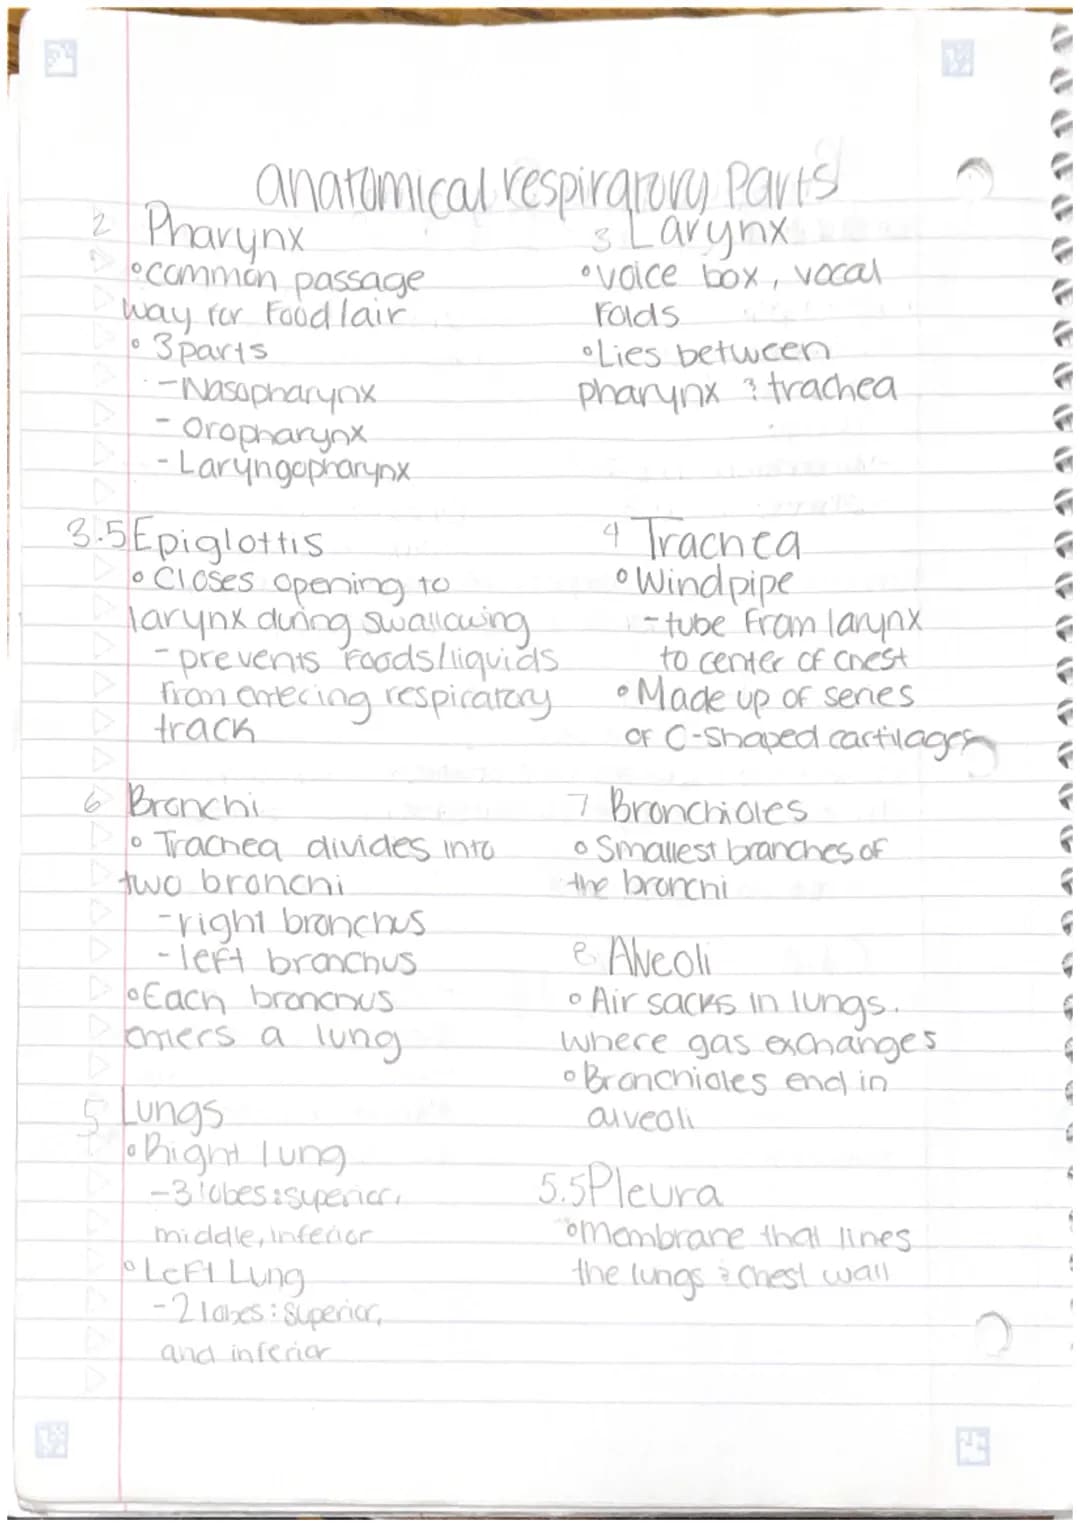 anatomical respiratory Parts
2 Pharynx
• common passage
way for Food/air
• 3 parts
- Nasopharynx
- Oropharynx
- Laryngopharynx
3 Larynx
• voice box, vocal
Folds
• Lies between
pharynx & trachea
3.5 Epiglottis
• Closes opening to
larynx during swallowing
- prevents foods/liquids
from entering respiratory
track
4 Trachea
• Windpipe
- tube From larynx
to center of chest
• Made up of series
of C-shaped cartilages
6 Bronchi
• Trachea divides into
two bronchi
- right bronchus
- left bronchus
• Each bronchus
enters a lung
7 Bronchioles
• Smallest branches of
the bronchi
8 Alveoli
• Air sacks in lungs.
where gas exchanges
• Bronchioles end in
alveoli
5 Lungs
• Right lung
- 3 lobes: superior,
middle, inferior
• Left Lung
- 2 lobes: superior,
and inferior
5.5 Pleura
• Membrane that lines
the lungs & chest wall